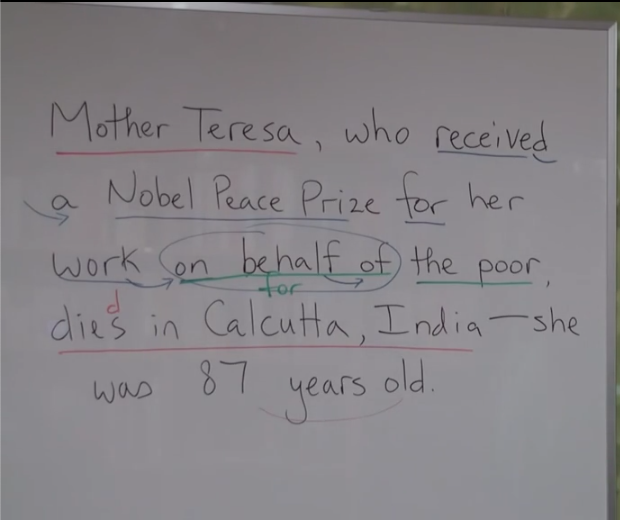 Mother Teresa, who received
a Nobel Peace Prize for her
work on behalf of the poor,
for
d
dies in Calcutta, India—she
was 87 years old.